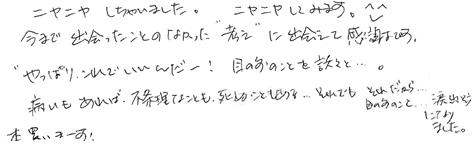 ニヤニヤ しちゃいました。 ニヤニヤしてみます。^^
今まで出会ったことのなかった“考え”に出会えて感謝です。
“やっぱり、これでいいんだー! 目の前のことを淡々と…。
病いもあれば、不条理なことも、死ぬこともある… それでも それだから… 目の前のこと… 涙出そうになりました。
本買いまーす!